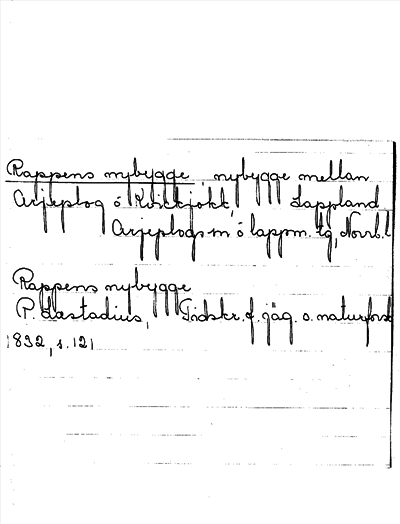 Rappens nybygge, nybygge mellan
Arjeplog o Kvikkjokk, Lappland
Arjeplogs sn o lappm. tg, Norrb. l
Rappens nybygge
P. Læstadius, Tidskr. f. jäg. o. naturforsk
1832, s. 121